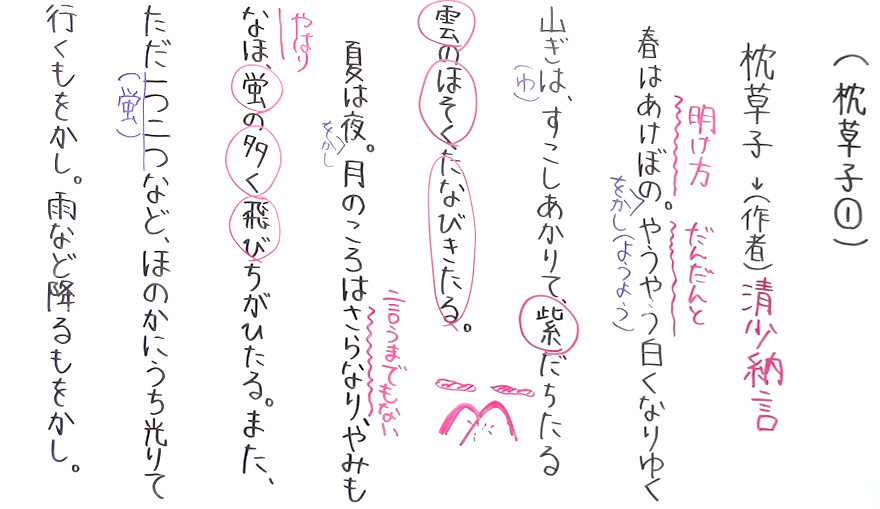 （枕草子①）
枕草子→(作者)清少納言
明け方　だんだんと
春はあけぼの。やうやう白くなりゆく
をかし（ようよう）
山ぎは、すこしあかりて、紫だちたる
（わ）
雲のほそくたなびきたる。
言うまでもない
夏は夜。月のころはさらなり、やみも
をかし
やはり
なほ、蛍の多く飛びちがひたる。また、
ただ一つ二つなど、ほのかにうち光りて
（蛍）
行くもをかし。雨など降るもをかし。